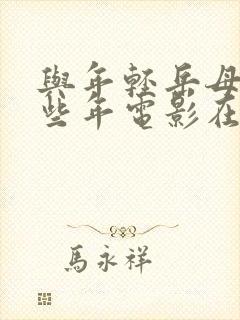 與年輕岳母
些年電影在
馬永祥